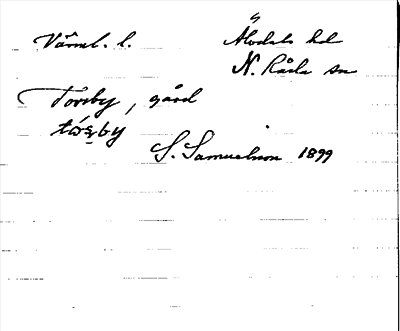 Värml. l. Älvdals hd
N. Råda sn
Torsby, gård
S. Samuelsson 1899